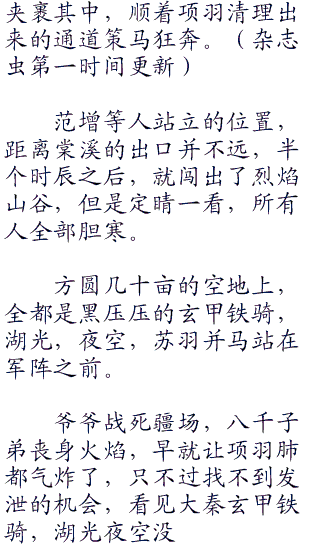 夹裹其中，顺着项羽清理出
来的通道策马狂奔。（杂志
虫第一时间更新）
范增等人站立的位置，
距离棠溪的出口并不远，半
个时辰之后，就闯出了烈焰
山谷，但是定睛一看，所有
人全部胆寒。
方圆几十亩的空地上，
全都是黑压压的玄甲铁骑，
湖光，夜空，苏羽并马站在
军阵之前。
爷爷战死疆场，八千子
弟丧身火焰，早就让项羽肺
都气炸了，只不过找不到发
泄的机会，看见大秦玄甲铁
骑，湖光夜空没